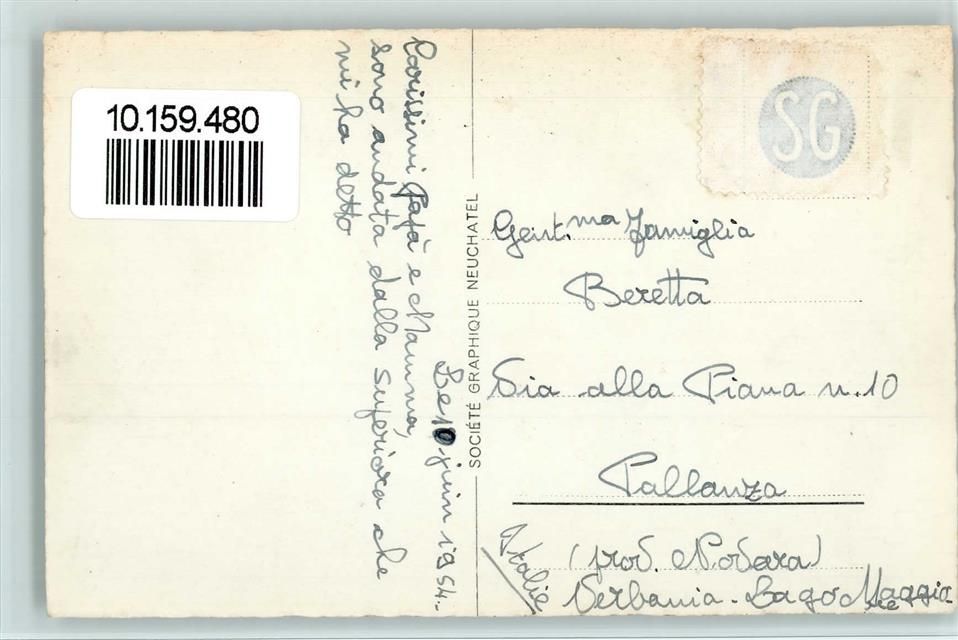 10.159.480
Le 10 juin 1954.-
Carissimi Papà e Mamma,
sono andata dalla superiora che
mi ha detto
SOCIÉTÉ GRAPHIQUE NEUCHATEL
SG
Gent.ma Famiglia
Beretta
Via alla Piana n.10
Pallanza
(prov. Novara)
Verbania - Lago Maggiore
Italie